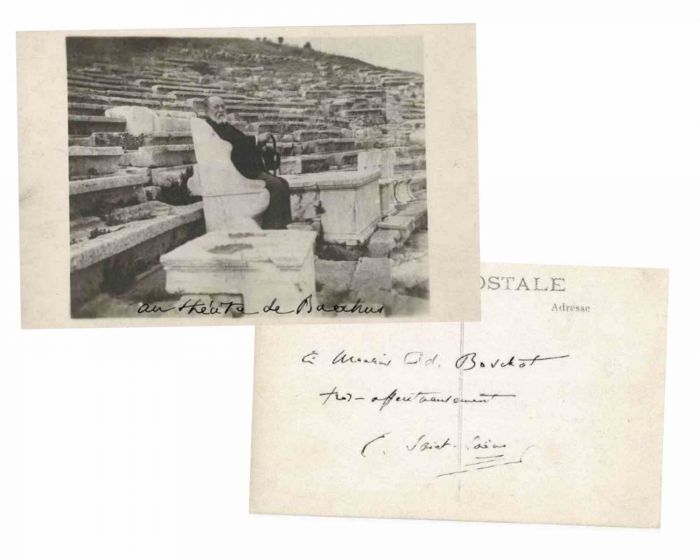 au théâtre de Bacchus
OSTALE
Adresse
à Monsieur Ad. Boschot
très-affectueusement
C. Saint-Saëns